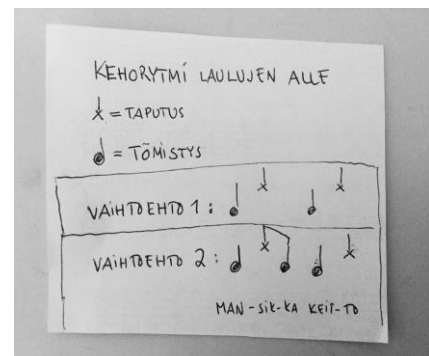 KEHORYTMI LAULUJEN ALLE
= TAPUTUS
= TÖMISTYS
VAIHTOEHTO 1:
VAIHTOEHTO 2:
MAN-SIK-KA KEIT-TO